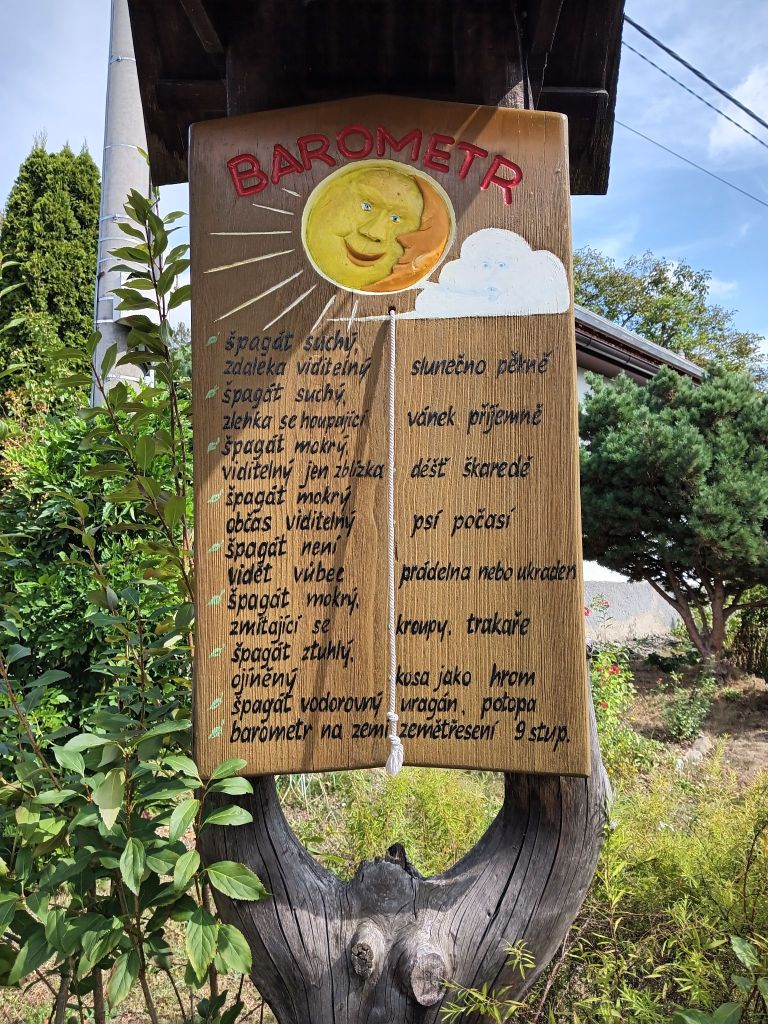 BAROMETR
špagát suchý,
zdaleka viditelný slunečno pěkně
špagát suchý,
zlehka se houpající vánek příjemně
špagát mokrý,
viditelný jen zblízka déšť škaredě
špagát mokrý
občas viditelný psí počasí
špagát není
vidět vůbec prádelna nebo ukraden
špagát mokrý,
zmítající se kroupy, trakaře
špagát ztuhlý,
ojíněný kosa jako hrom
špagát vodorovný uragán, potopa
barometr na zemi zemětřesení 9 stup.